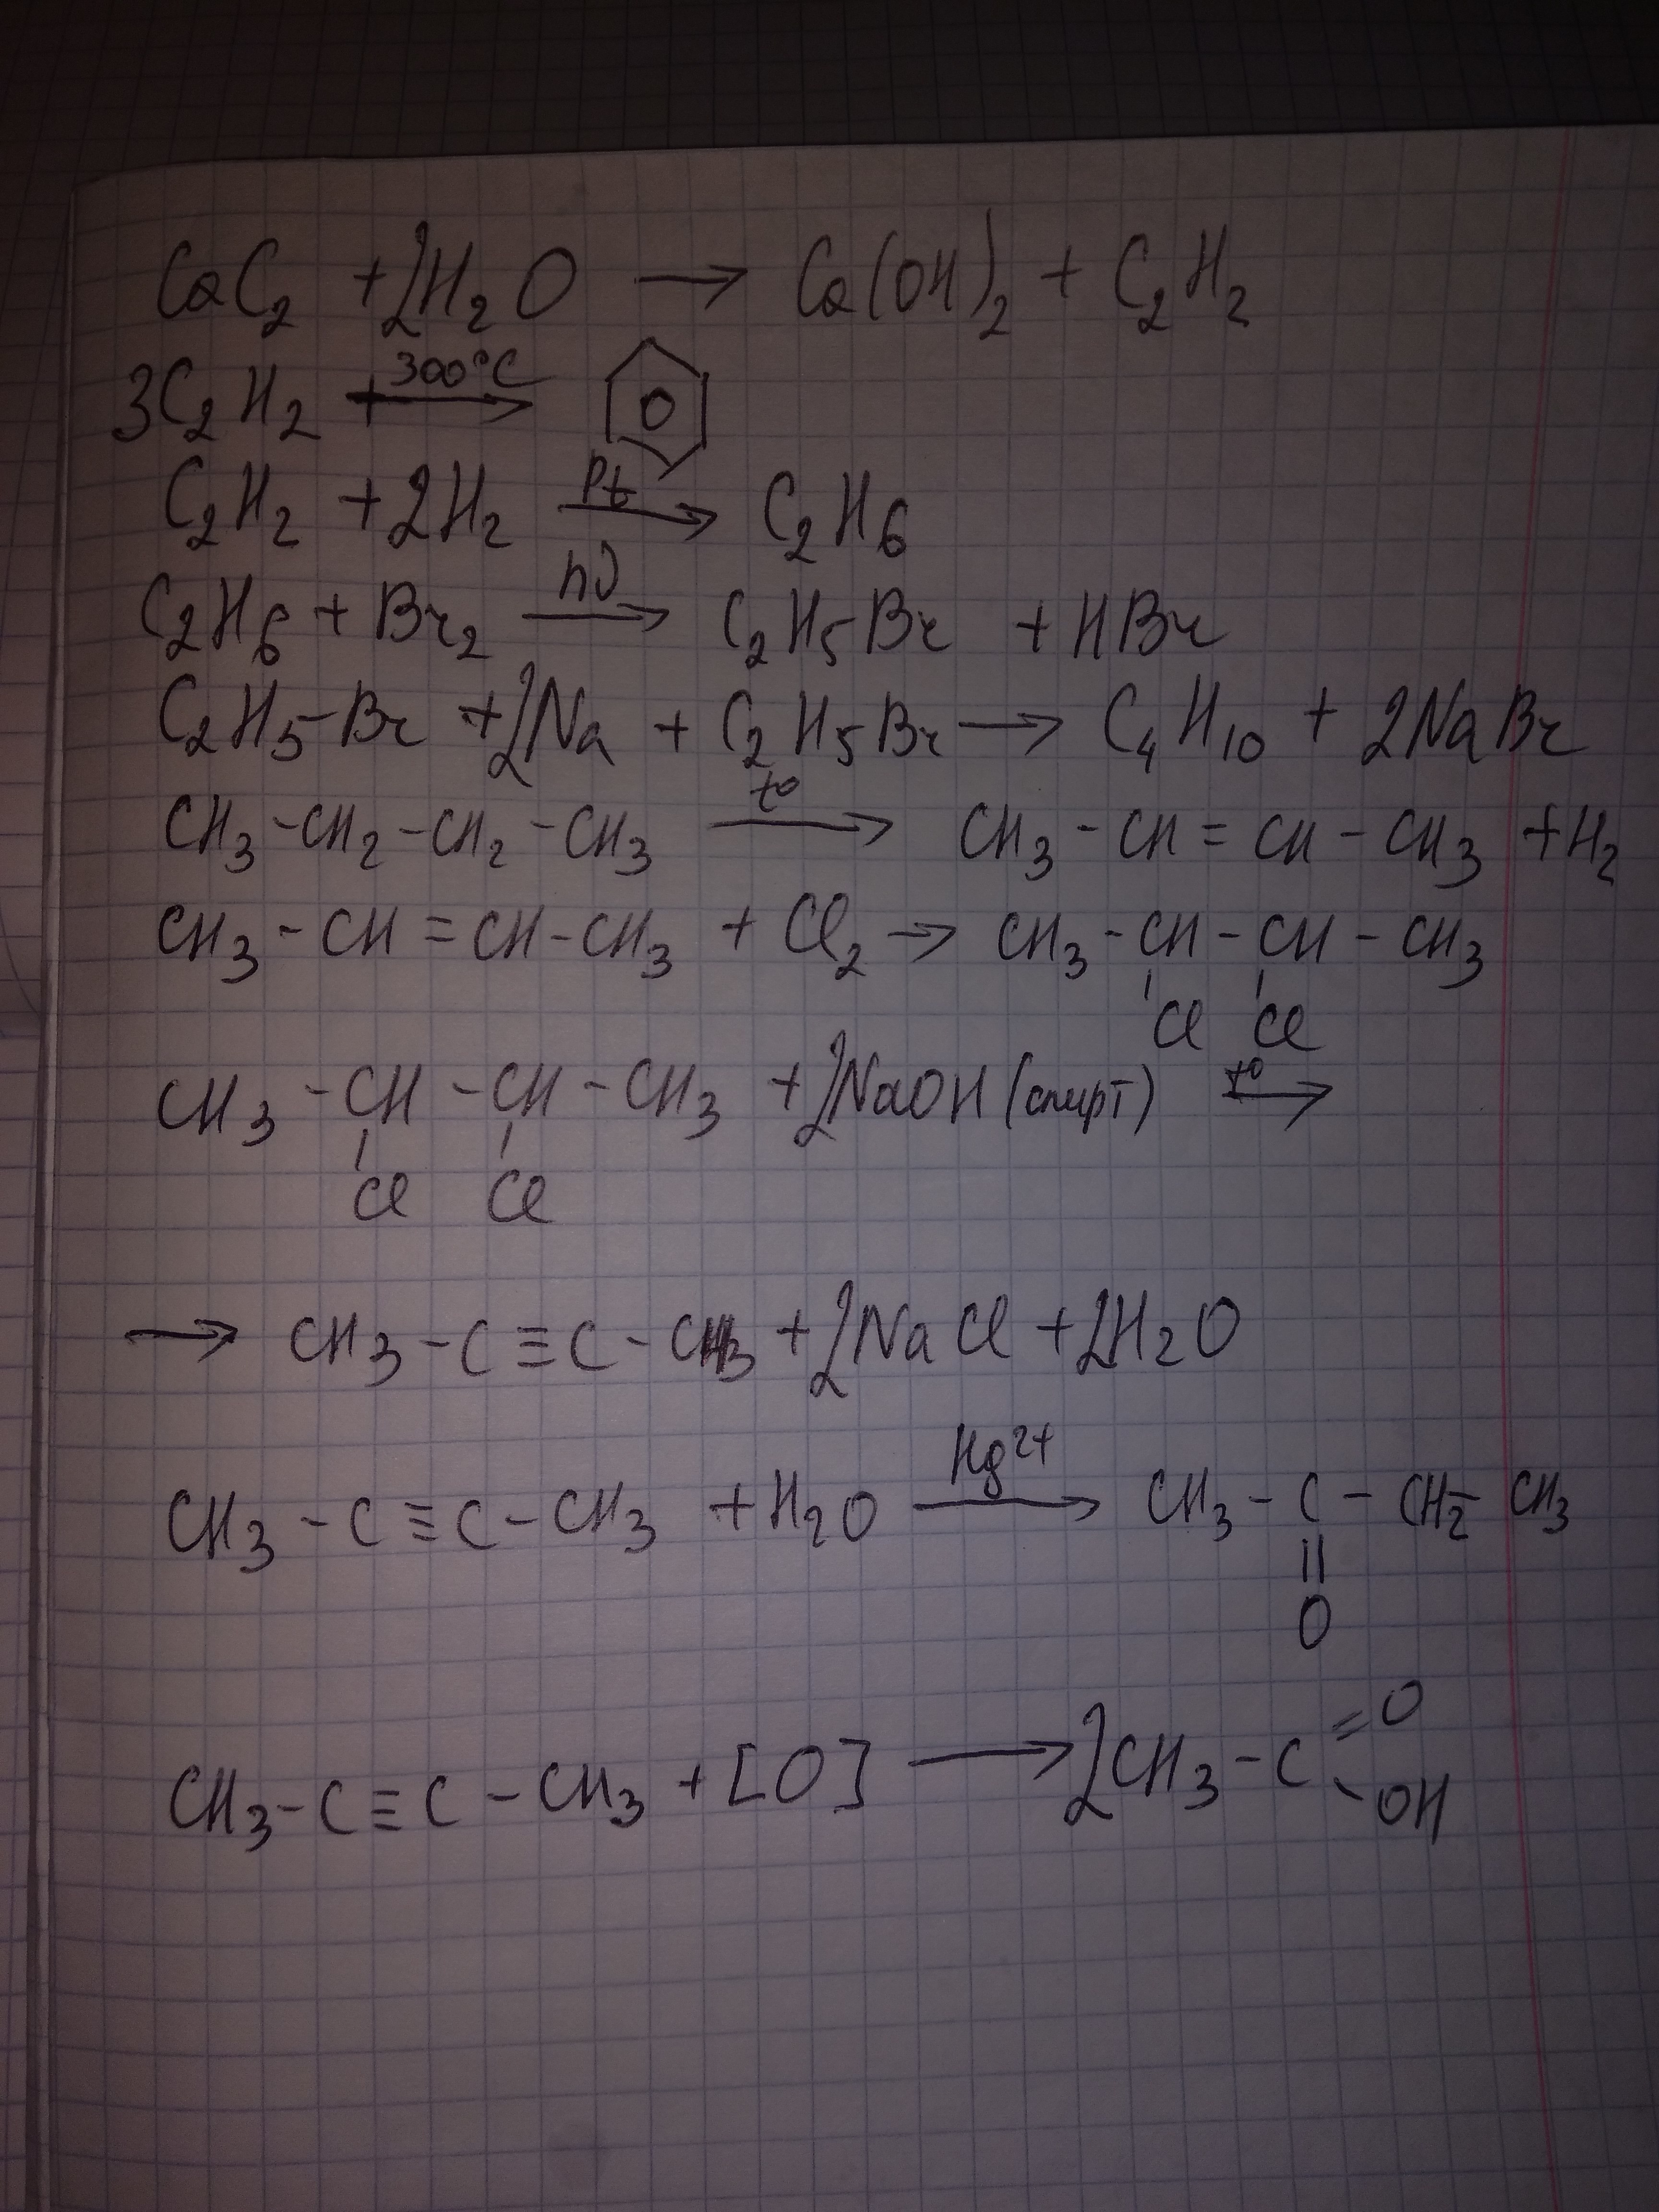 CaC₂ + 2H₂O → Ca(OH)₂ + C₂H₂
300°C
3C₂H₂ + →
Pt
C₂H₂ + 2H₂ → C₂H₆
hν
C₂H₆ + Br₂ → C₂H₅Br + HBr
C₂H₅-Br + 2Na + C₂H₅Br → C₄H₁₀ + 2NaBr
t°
CH₃-CH₂-CH₂-CH₃ → CH₃-CH=CH-CH₃ + H₂
CH₃-CH=CH-CH₃ + Cl₂ → CH₃-CH-CH-CH₃
Cl Cl
CH₃-CH-CH-CH₃ + 2NaOH (спирт) t° →
Cl Cl
→ CH₃-C≡C-CH₃ + 2NaCl + 2H₂O
Hg²⁺
CH₃-C≡C-CH₃ + H₂O → CH₃-C-CH₂-CH₃
||
O
O
CH₃-C≡C-CH₃ + [O] → 2CH₃-C
OH